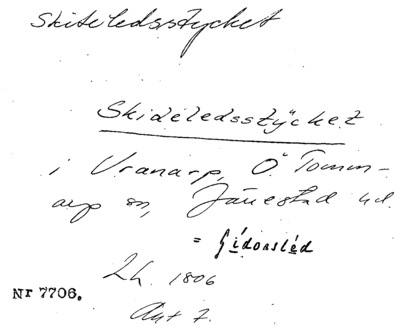 Skiteledsstycket
Skideledsstÿcket
i Vranarp, Ö. Tomm-
arp sn, Järrestad hd.
= Gídonsléd
Lh. 1806
Akt 7.
Nr 7706.